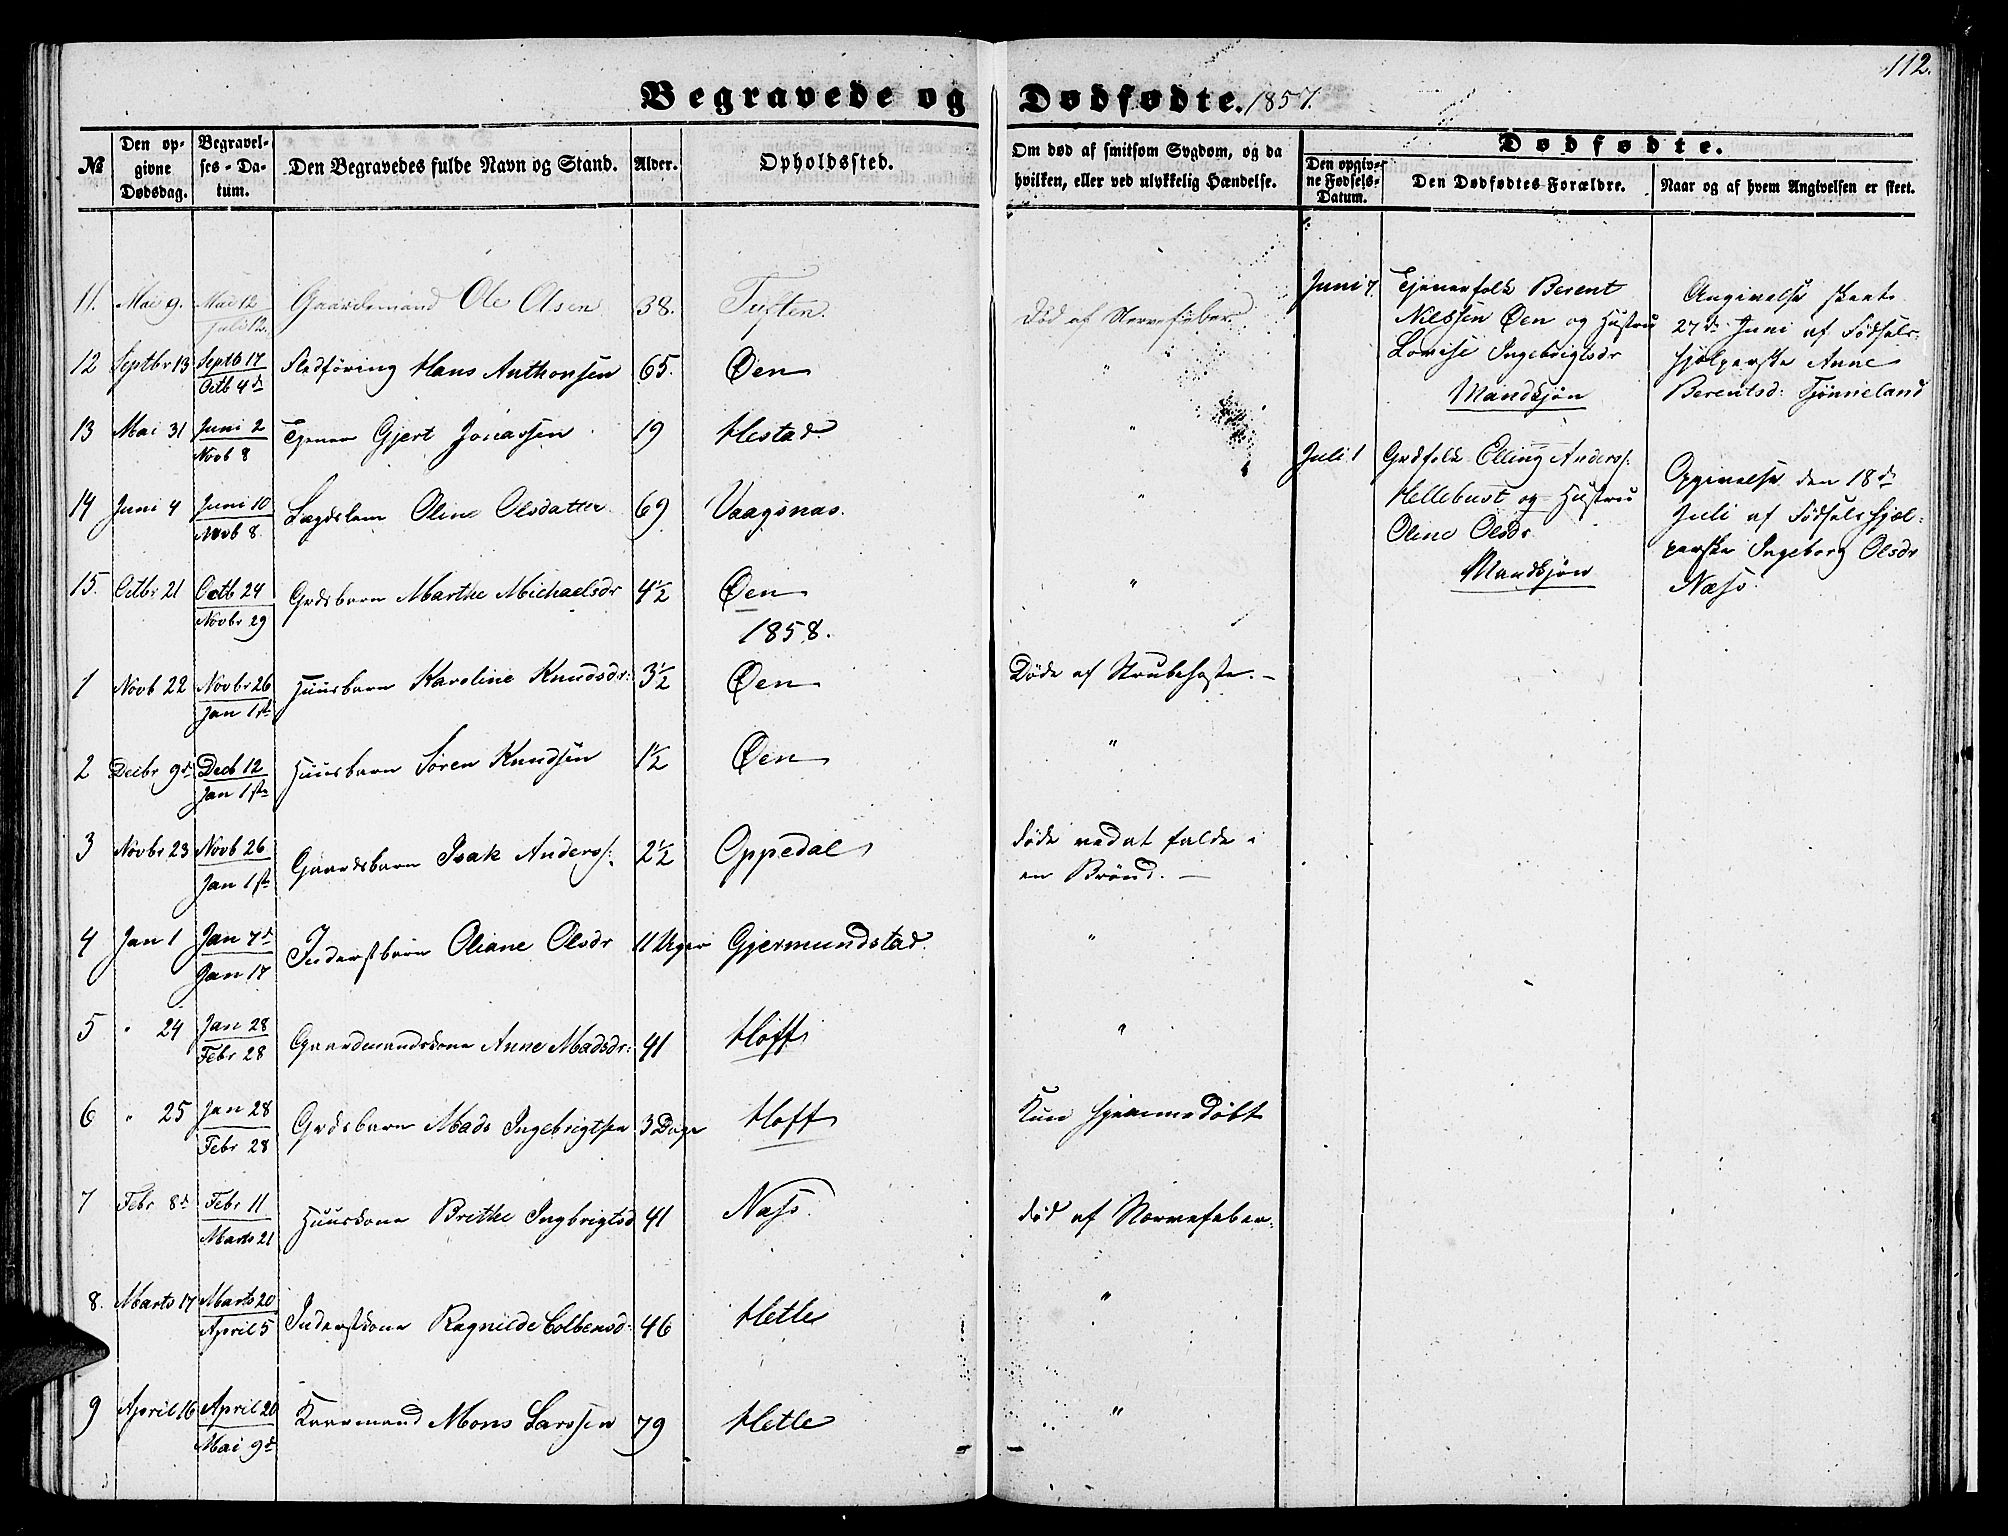 112.
Begravede og Dødfødte. 1857.
№ Den opgivne Dødsdag. Begravelses-Datum. Den Begravedes fulde Navn og Stand. Alder. Opholdssted. Om død af smitsom Sygdom, og da hvilken, eller ved ulykkelig Hændelse. Dødfødte. Den opgivne Fødsels-Datum. Den Dødfødtes Forældre. Naar og af hvem Angivelsen er skeet.
11. Mai 9. Mai 12 Juli 12. Gaardemand Ole Olsen 38. Tuften. Død af Nervefeber
12 Septbr 13 Septb 17 Octb 4de Hans Anthonsen 65. Øen "
13 Mai 31 Juni 2 Novb 8 Tjener Gjert Jonassen 19 Hestad "
14 Juni 4 Juni 10 Novb 8. Lægdslem Oline Olsdatter 69 Vaagsnæs. "
15. Octbr 21 Octb 24 Novbr 29 Grdsbarn Marthe Michaelsdr 4½ Øen "
1858.
1 Novb 22 Novbr 26 Jan 1ste Huusbarn Karoline Knudsdr: 3½ Øen Døde af Strubehoste. –
2 Decbr 9de Decb 12 Jan 1ste Huusbarn Søren Knudsen 1½ Øen "
3 Novbr 23 Novb 26 Jan 1ste Gaardsbarn Isak Anderss: 2½ Oppedal døde ved at falde i
en Brønd. –
4 Jan 1 Jan 7de Jan 17 Inderstbarn Oliane Olsdr 11 Uger Gjermundstad. "
5 " 24 Jan 28 Febr 28 Gaardmandskone Anne Madsdr: 41 Hoff "
6 " 25 Jan 28 Febr 28 Grdsbarn Mads Ingebrigtsen 3 Dage Hoff Kun hjemmedøbt
7 Febr 8de Febr 11 Marts 21 Huuskone Brithe Ingbrigtsd 41 Næss. død af Nervefeber.
8. Marts 17 Marts 20 April 5 Inderstkone Ragnilde Colbensd: 46 Hetle "
9 April 16 April 20 Mai 9de Kaarmand Mons Larssen 79 Hetle "
Juni 7. Tjenerfolk Berent
Nilssen Øen og Hustru
Lovise Ingebrigtsdr
Mandkjøn
Angivelse skeete
27de Juni af Fødsels-
hjelperske Anne
Berentsd: Tjønneland
Juli 1 Grdfolk Elling Anderss:
Hellebust og Hustru
Oline Olsdr
Mandkjøn
Opgivelse den 18de
Juli af Fødselshjæl-
perske Ingeborg Olsdr
Næss.